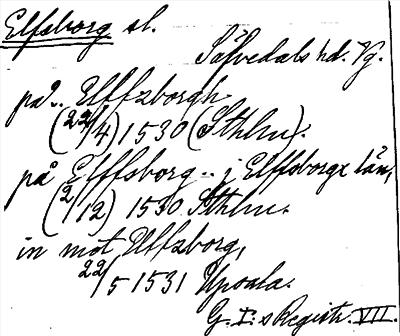 Elfsborg sl.
Säfvedals hd. Vg.
på.. Elffzborgh
(22/4) 1530 (Sthlm).
på Elffsborg.. i Elffsborgx län,
(2/12) 1530 Sthlm.
in mot Elffzborg,
22/5 1531 Upsala.
G. I:s Registr. VII.